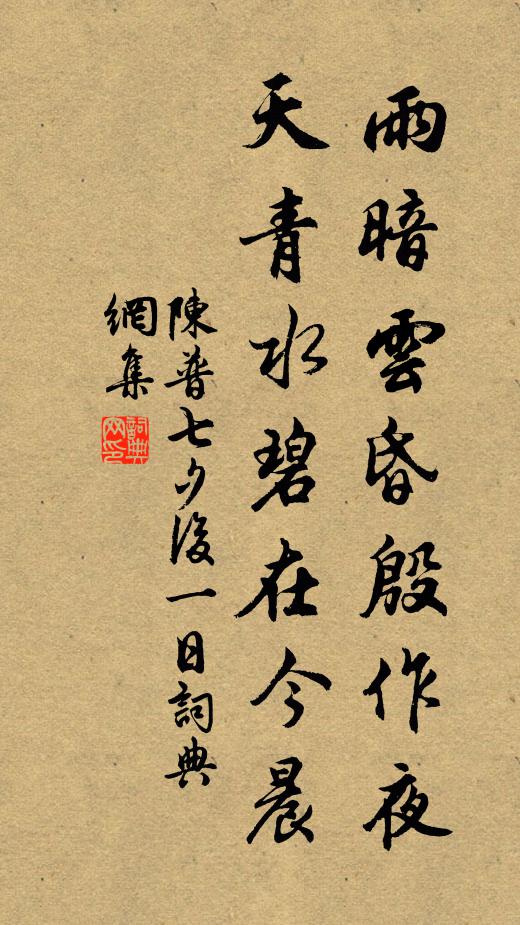 雨暗雲昏殷作夜
天青水碧在今晨
陳普七夕後一日詞典
網集
詞典
网印